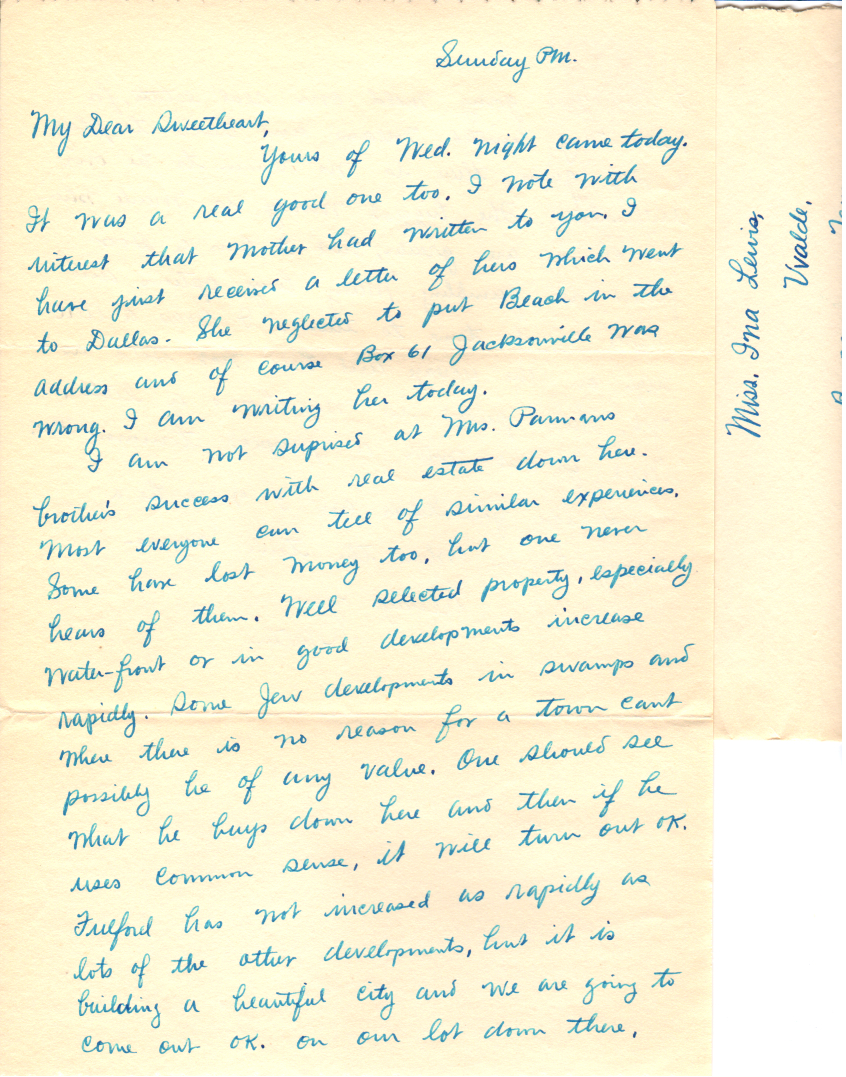 Sunday PM.
My Dear Sweetheart,
Yours of Wed. night came today.
It was a real good one too. I note with
interest that Mother had written to you. I
have just received a letter of hers which went
to Dallas. She neglected to put Beach in the
address and of course Box 61 Jacksonville was
wrong. I am writing her today.
I am not suprised at Mrs. Parmans
brother's success with real estate down here.
Most everyone can tell of similar experiences.
Some have lost money too, but one never
hears of them. Well selected property, especially
water-front or in good developments increase
rapidly. Some Jew developments in swamps and
where there is no reason for a town cant
possibly be of any value. One should see
what he buys down here and then if he
uses common sense, it will turn out OK.
Fulford has not increased as rapidly as
lots of the other developments, but it is
building a beautiful city and we are going to
come out OK. on our lot down there.
Miss. Ina Lewis,
Uvalde,